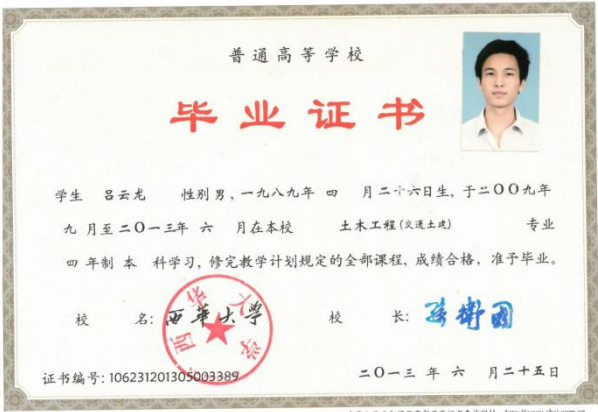 普通高等学校
毕业证书
学生 吕云龙 性别男,一九八九年 四 月二十六日生,于二〇〇九年
九 月至二〇一三年 六 月在本校 土木工程(交通土建) 专业
四 年制 本 科学习,修完教学计划规定的全部课程,成绩合格,准予毕业。
校 名:西华大学 校 长:
西华大学
证书编号:106231201305003389 二〇一三年 六 月二十五日